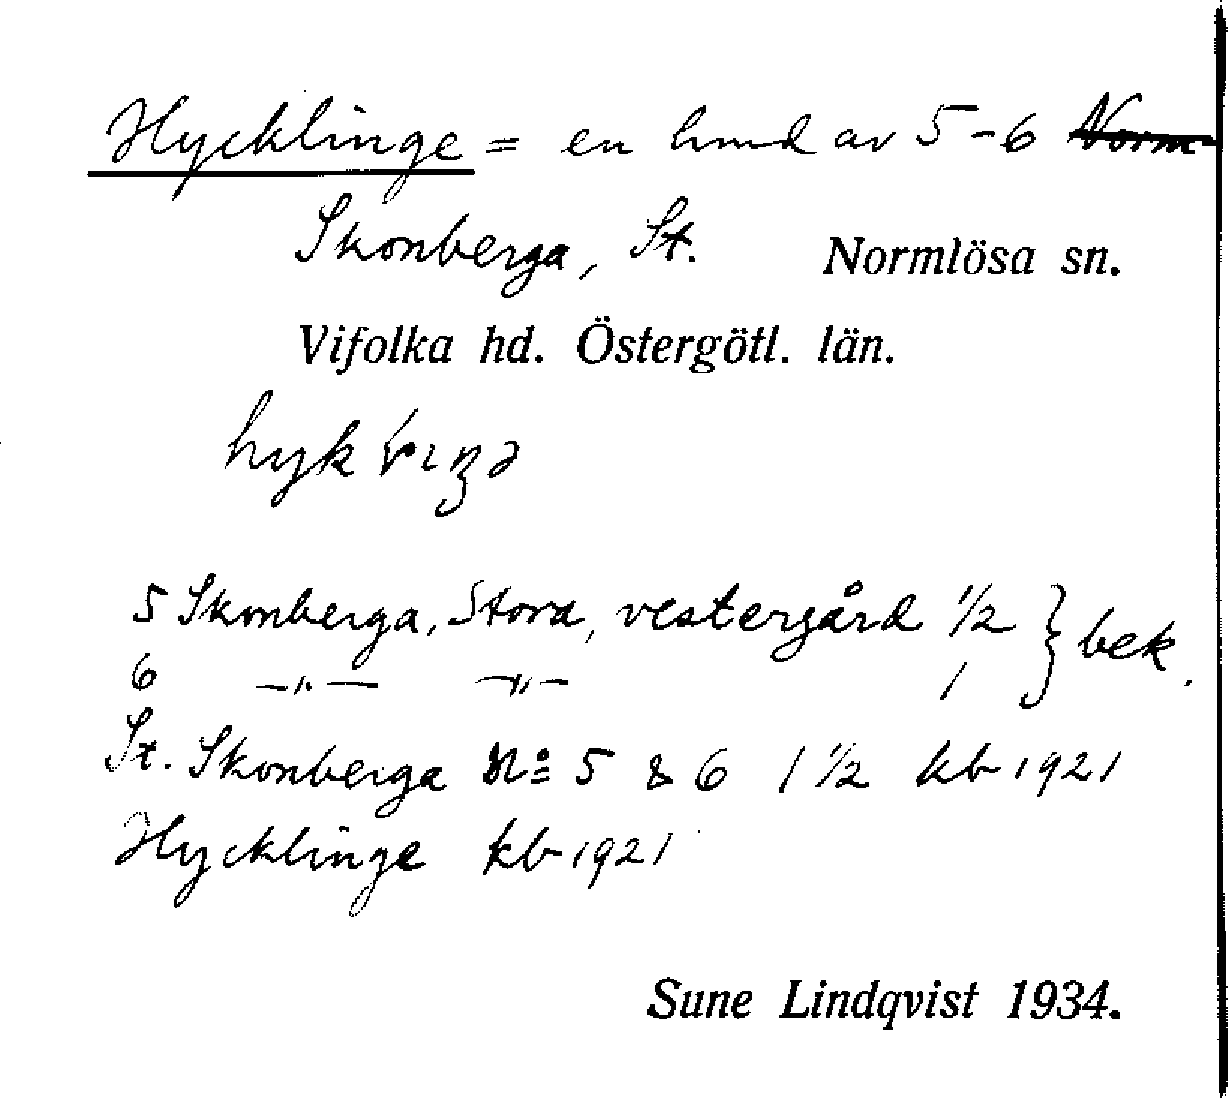 Hycklinge = en hmd av 5-6 Norm
Skonberga, St. Normlösa sn.
Vifolka hd. Östergötl. län.
5 Skonberga, Stora, vestergård 1/2 } bek.
6 —„— —„— 1
St. Skonberga No 5 & 6 1 1/2 kb 1921
Hycklinge kb 1921
Sune Lindqvist 1934.